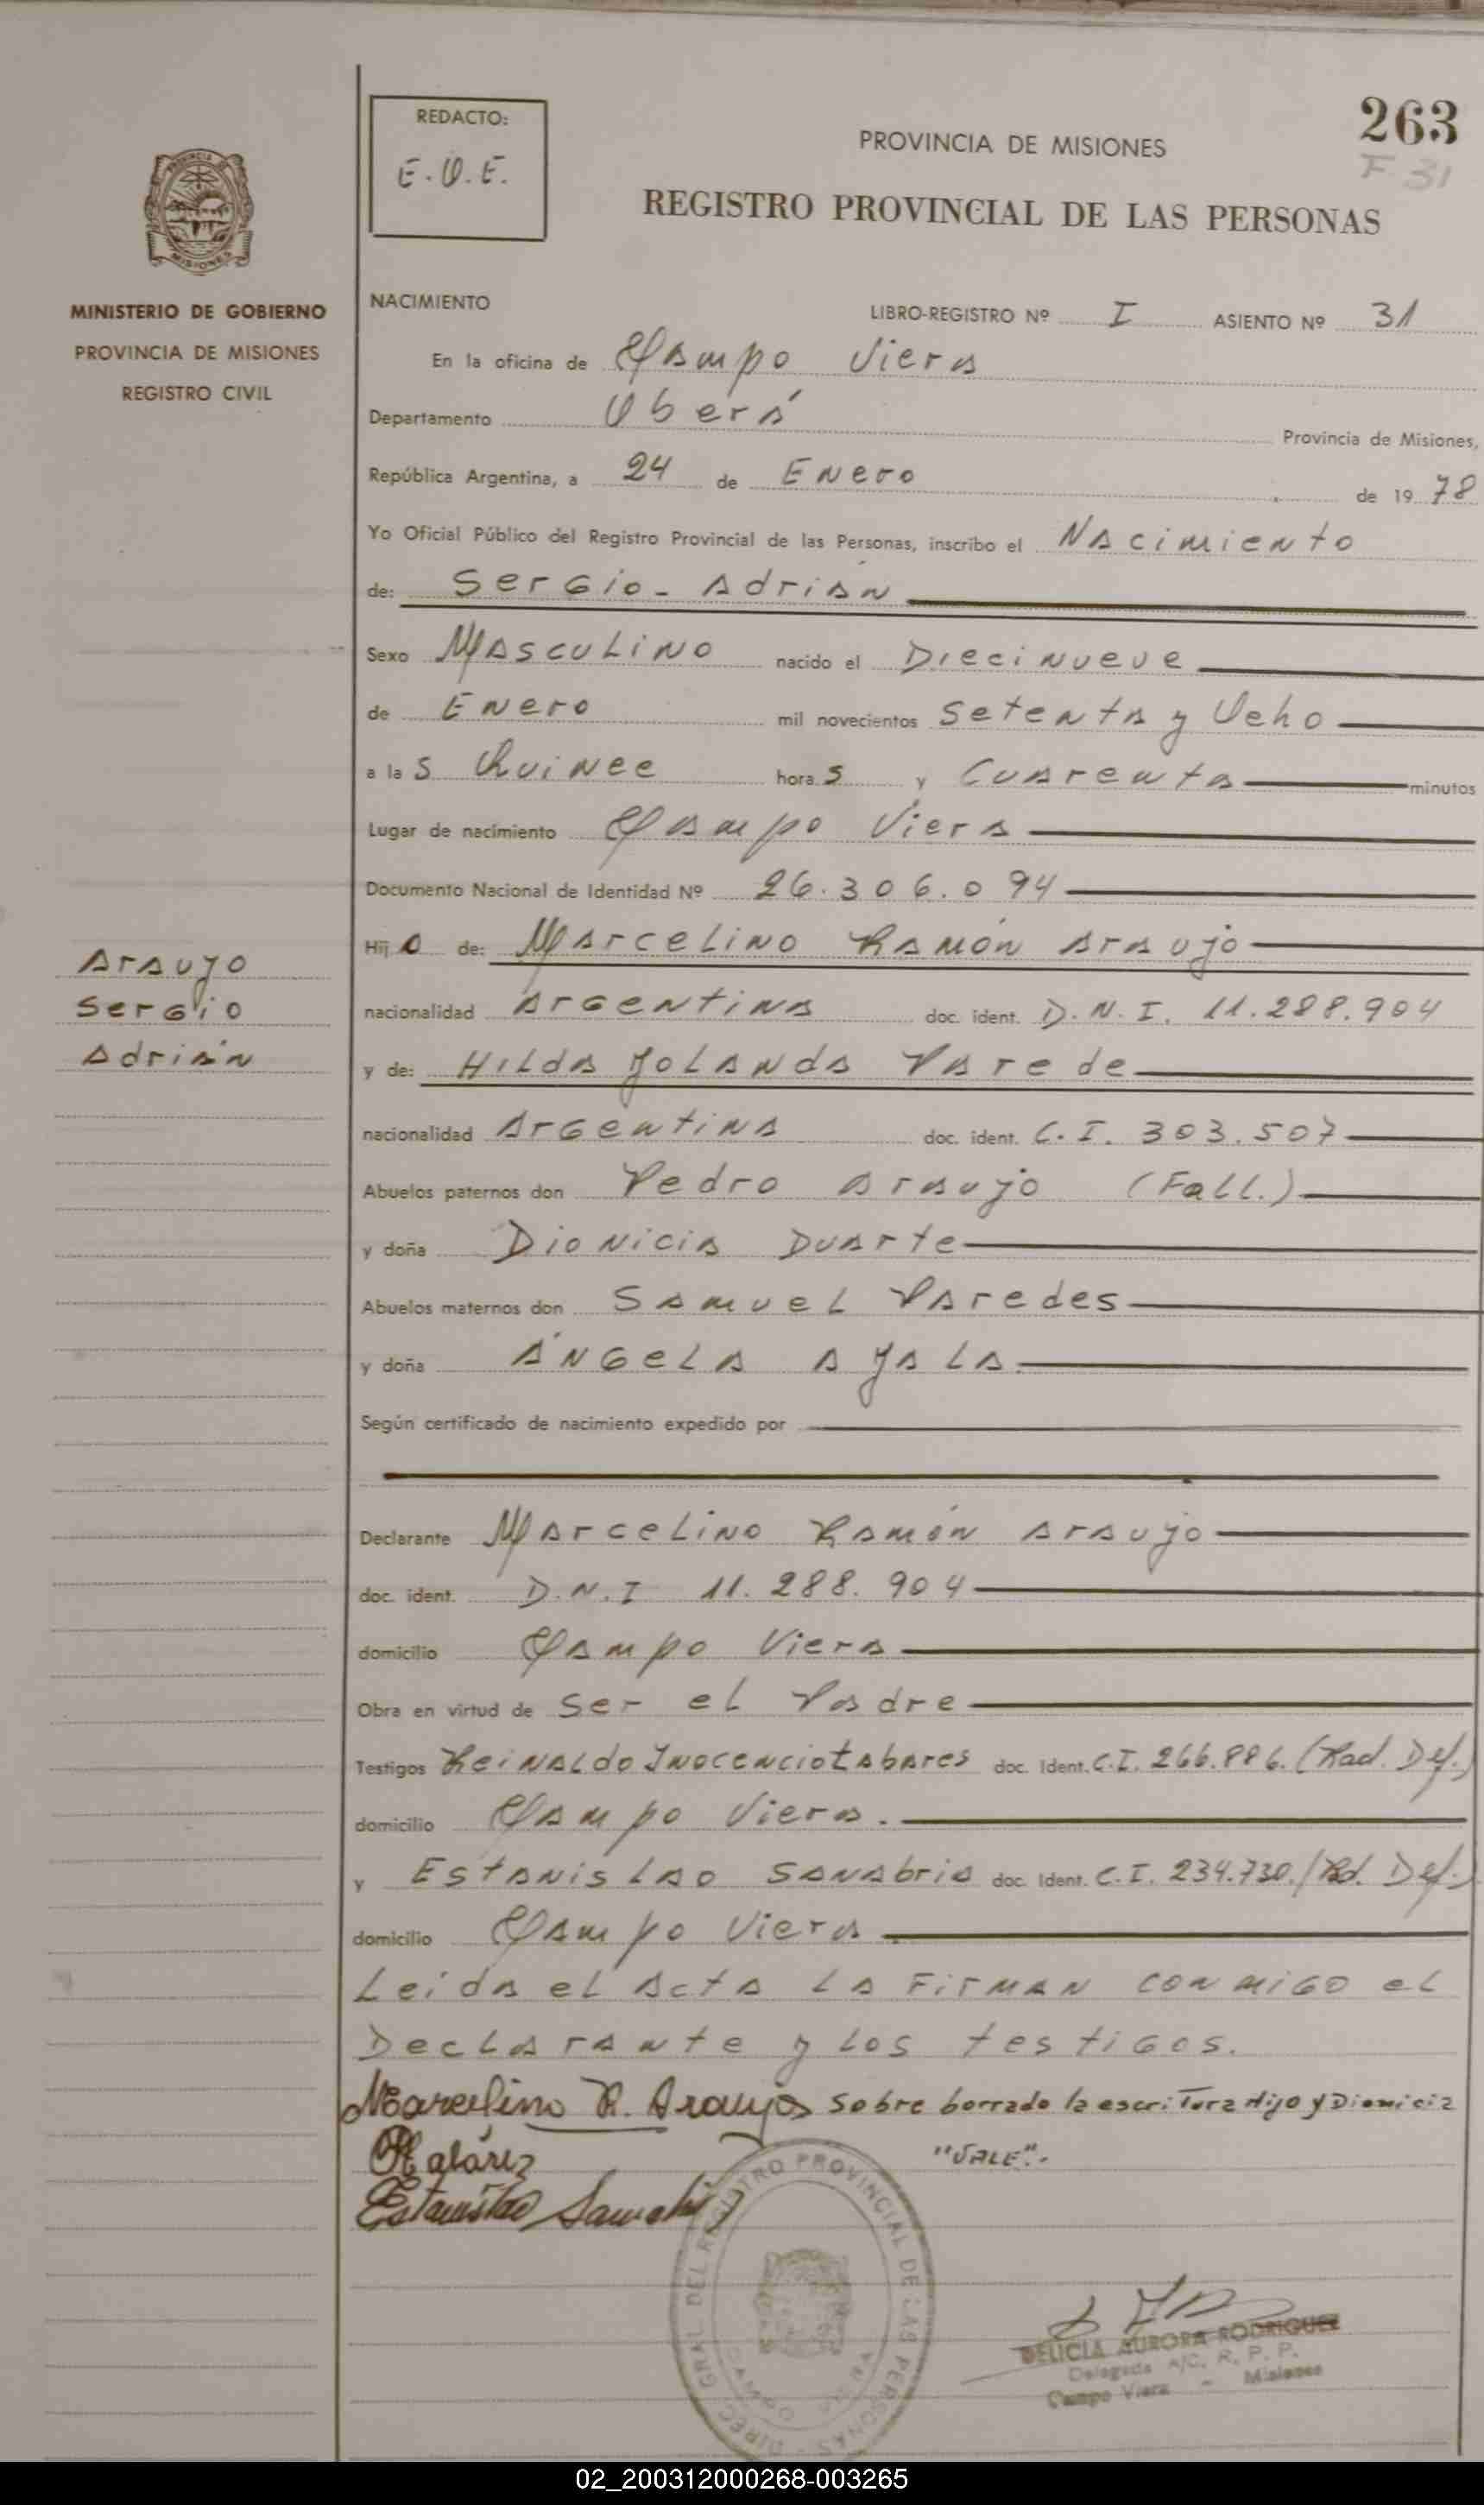 263
F 31
REDACTO:
E.O.E.
PROVINCIA DE MISIONES
REGISTRO PROVINCIAL DE LAS PERSONAS
PROVINCIA DE
MISIONES
MINISTERIO DE GOBIERNO
PROVINCIA DE MISIONES
REGISTRO CIVIL
NACIMIENTO
LIBRO-REGISTRO Nº I ASIENTO Nº 31
En la oficina de Campo Viera
Departamento Oberá Provincia de Misiones,
República Argentina, a 24 de Enero de 1978
Yo Oficial Público del Registro Provincial de las Personas, inscribo el Nacimiento
de: Sergio - Adrián
Sexo Masculino nacido el Diecinueve
de Enero mil novecientos Setenta y Ocho
a las Quince horas y Cuarenta minutos
Lugar de nacimiento Campo Viera
Documento Nacional de Identidad Nº 26.306.094
Hijo de: Marcelino Ramón Araujo
nacionalidad Argentina doc. ident. D.N.I. 11.288.904
y de: Hilda Yolanda Parede
nacionalidad Argentina doc. ident. C.I. 303.507
Abuelos paternos don Pedro Araujo (Fall.)
y doña Dionicia Duarte
Abuelos maternos don Samuel Paredes
y doña Ángela Ayala
Según certificado de nacimiento expedido por
Araujo
Sergio
Adrián
Declarante Marcelino Ramón Araujo
doc. ident. D.N.I 11.288.904
domicilio Campo Viera
Obra en virtud de Ser el Padre
Testigos Reinaldo Inocencio Tabares doc. Ident. C.I. 266.886. (Rad. Def.)
domicilio Campo Viera.
y Estanislao Sanabria doc. Ident. C.I. 234.730. (Rd. Def.)
domicilio Campo Viera
Leida el Acta la Firman conmigo el
Declarante y los testigos.
Marcelino R. Araujo Sobre borrado la escritura Hijo y Dionicia
"VALE".-
Estanislao
DIREC. GRAL. DEL REGISTRO PROVINCIAL DE LAS PERSONAS
CAMPO VIERA
DELICIA AURORA RODRIGUEZ
Delegada A/C. R. P. P.
Campo Viera - Misiones
02_200312000268-003265